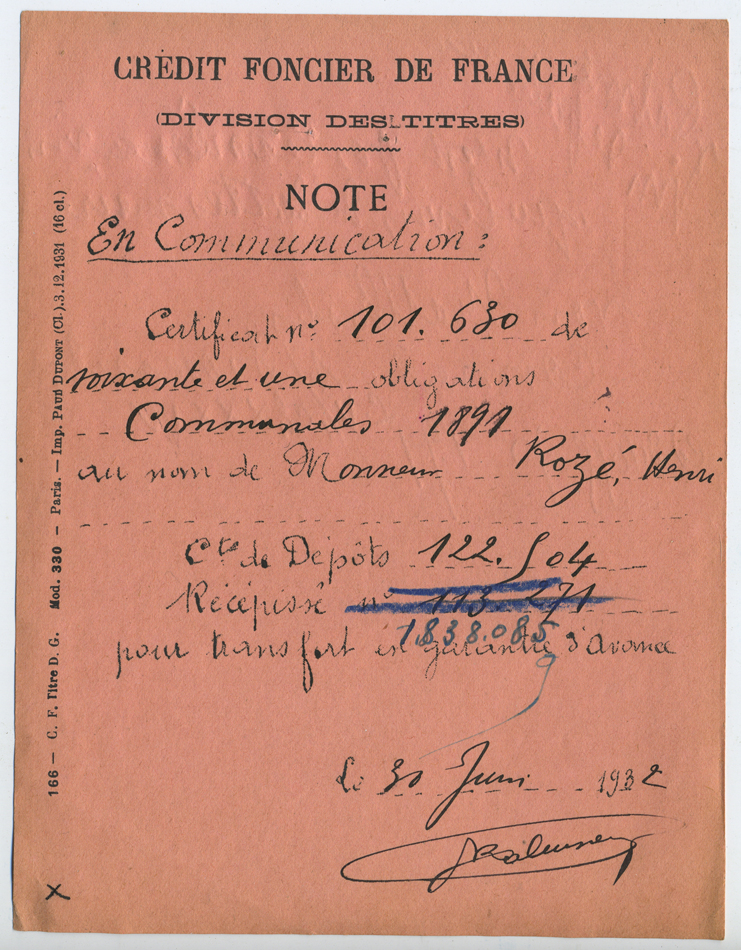 CRÉDIT FONCIER DE FRANCE
(DIVISION DES TITRES)
NOTE
En Communication :
Certificat nº 101.630 de
soixante et une obligations
Communales 1891
au nom de Monsieur Rozé, Henri
Cte de Dépôts 122.504
Récépissé nº 113.271
1.838.085
pour transfert en garantie d'Avance
Le 30 Juin 1932
X
166 — C. F. Titre D. G. Mod. 330 — Paris. — Imp. Paul DUPONT (Cl.).3.12.1931 (16 cl.)